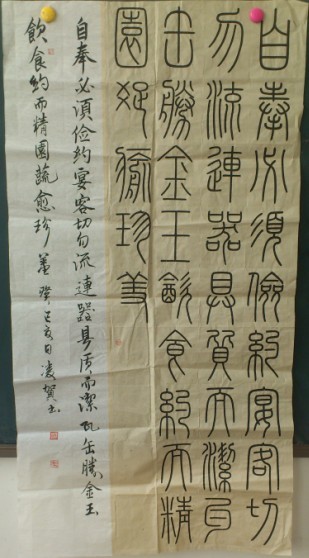 自奉必須儉約宴客切
勿流連器具質而潔瓦
缶勝金玉飲食約而精
園蔬愈珍羞
自奉必須俭約宴客切勿流連器具质而潔瓦缶勝金玉
飲食約而精園蔬愈珍羞 癸巳亥日凌贺书